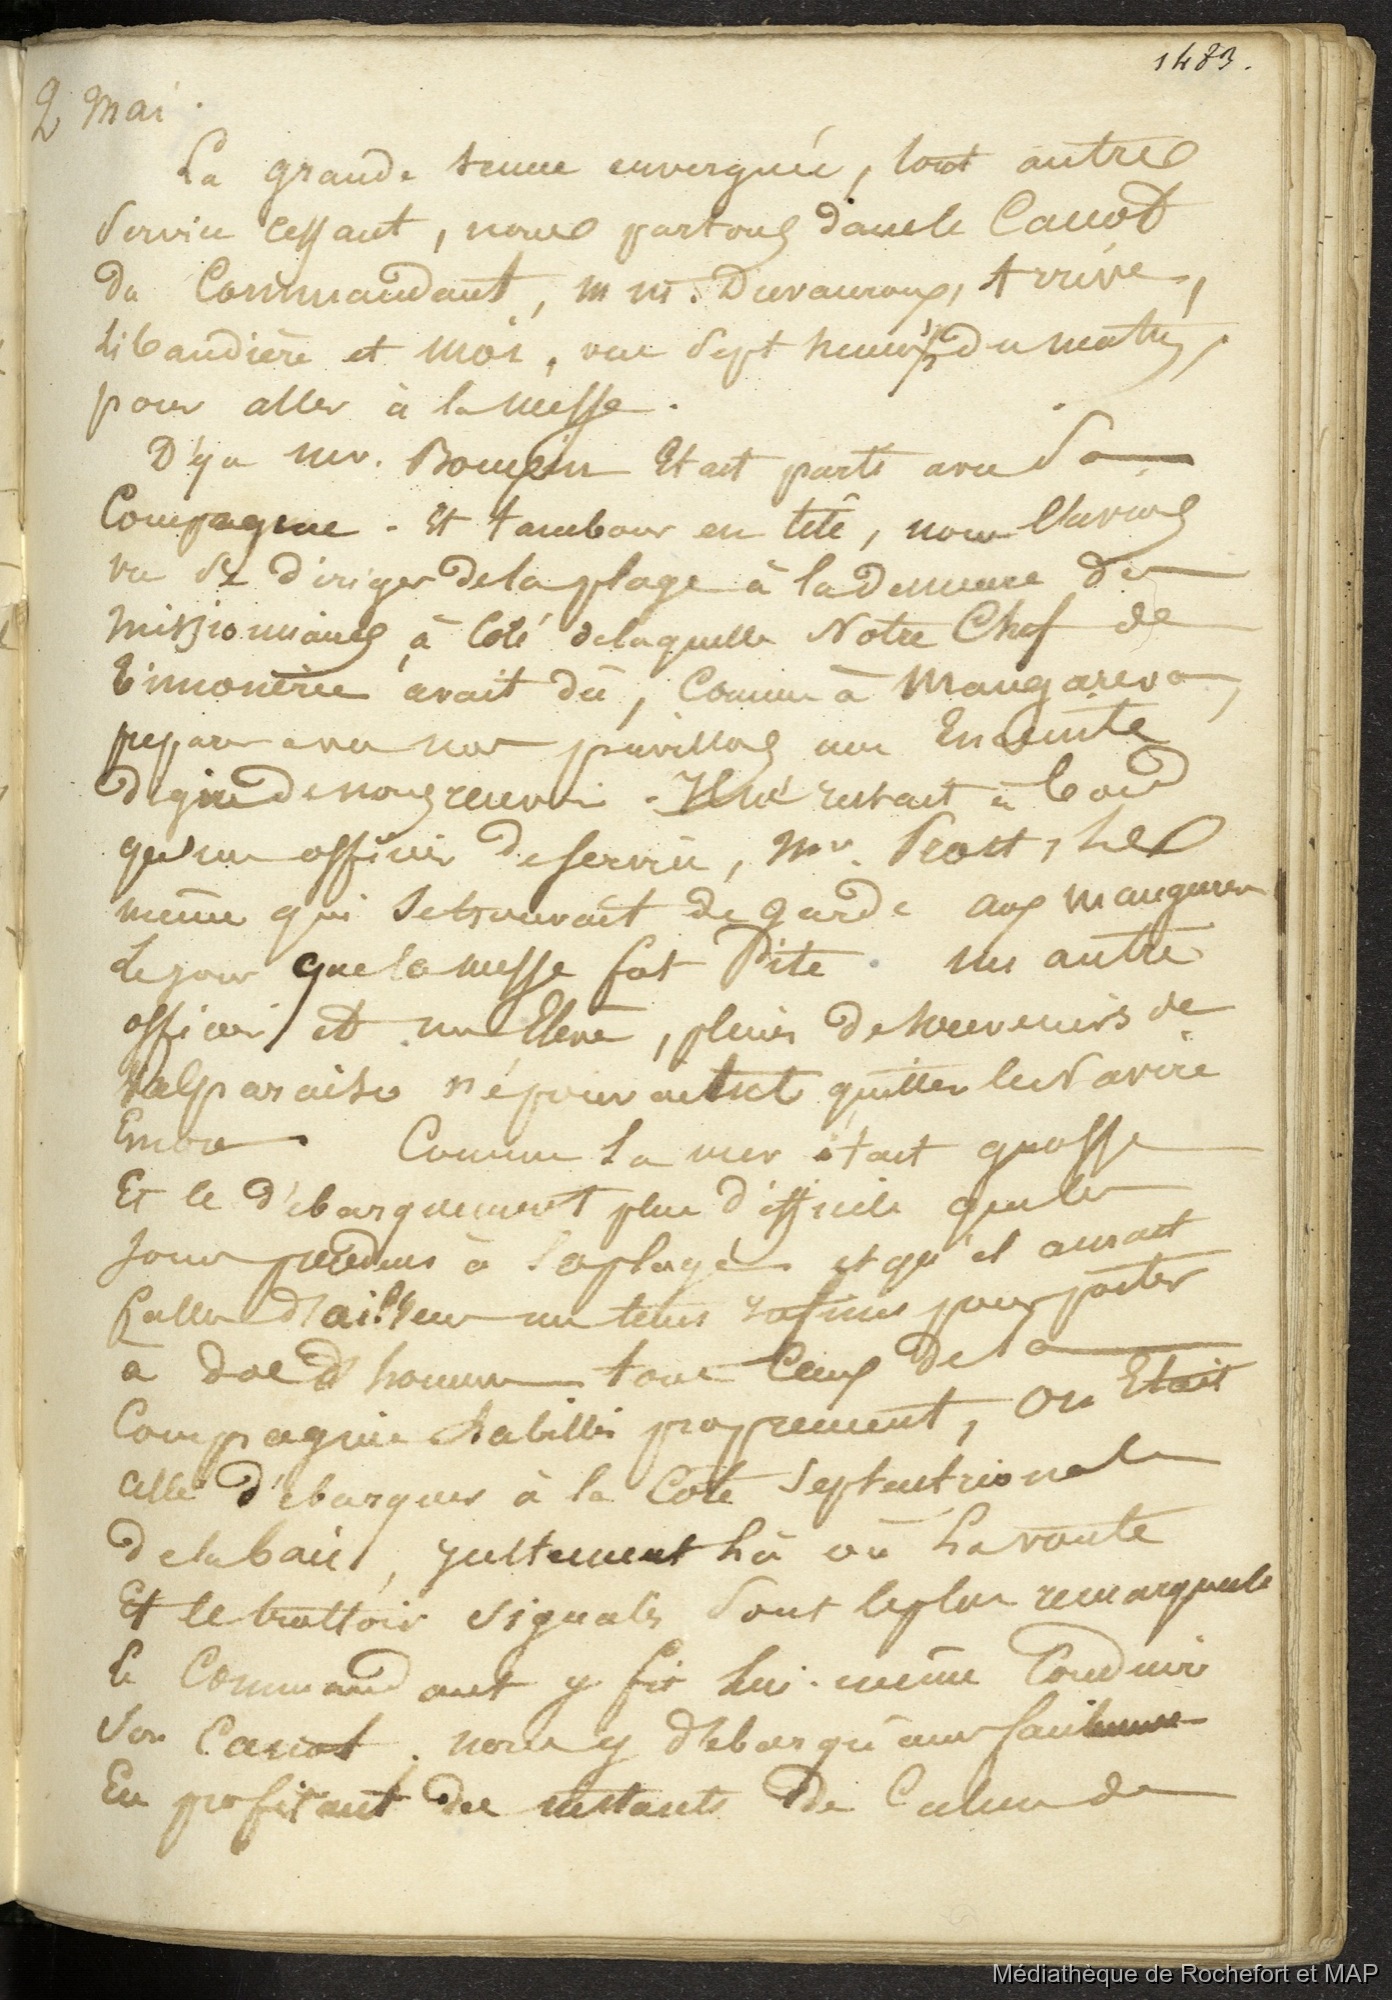 1483.
2 Mai.
La grande tenue enverguée, tout autre
Service cessant, nous partons dans le Canot
du Commandant, m m. Duvauroux, Arrivé,
Libaudière et moi, vue Sept heures 1/2 du matin,
pour aller à la messe.
Déja mr. Bourgin Etait parti avec Sa
Compagnie. Et tambour en tête, nous l'avions
vu Se diriger de la plage à la Demeure des
missionnaires à Coté delaquelle Notre Chef de
timonerie avait dû, Comme à Mangareva,
preparer avec nos pavillons une Enceinte
digne de nous recevoir. Il ne restait à bord
qu'un officier de Service, Mr. Prost, Le
même qui Setrouvait de garde aux mangareva
Le jour que la messe fut Dite. un autre
officier et un Eleve, pleins de Souvenirs de
Valparaiso né pouvaient quitter le Navire
Encore Comme La mer était grosse
Et le débarquement plus difficile que les
jours à la plage et qu'il aurait
fallu d'ailleurs un tems infini pour porter
à dos d'homme tous Ceux de la
Compagnie habillés proprement, On Etait
allé débarquer à la Côte Septentrionale
de la baie, justement Là où La route
Et le trottoir Signalés Sont leplus remarquable
Le Commandant y fit Lui-même Conduire
Son Canot. nous y débarquâmes facilement
En profitant des instants de Calme de
Médiathèque de Rochefort et MAP